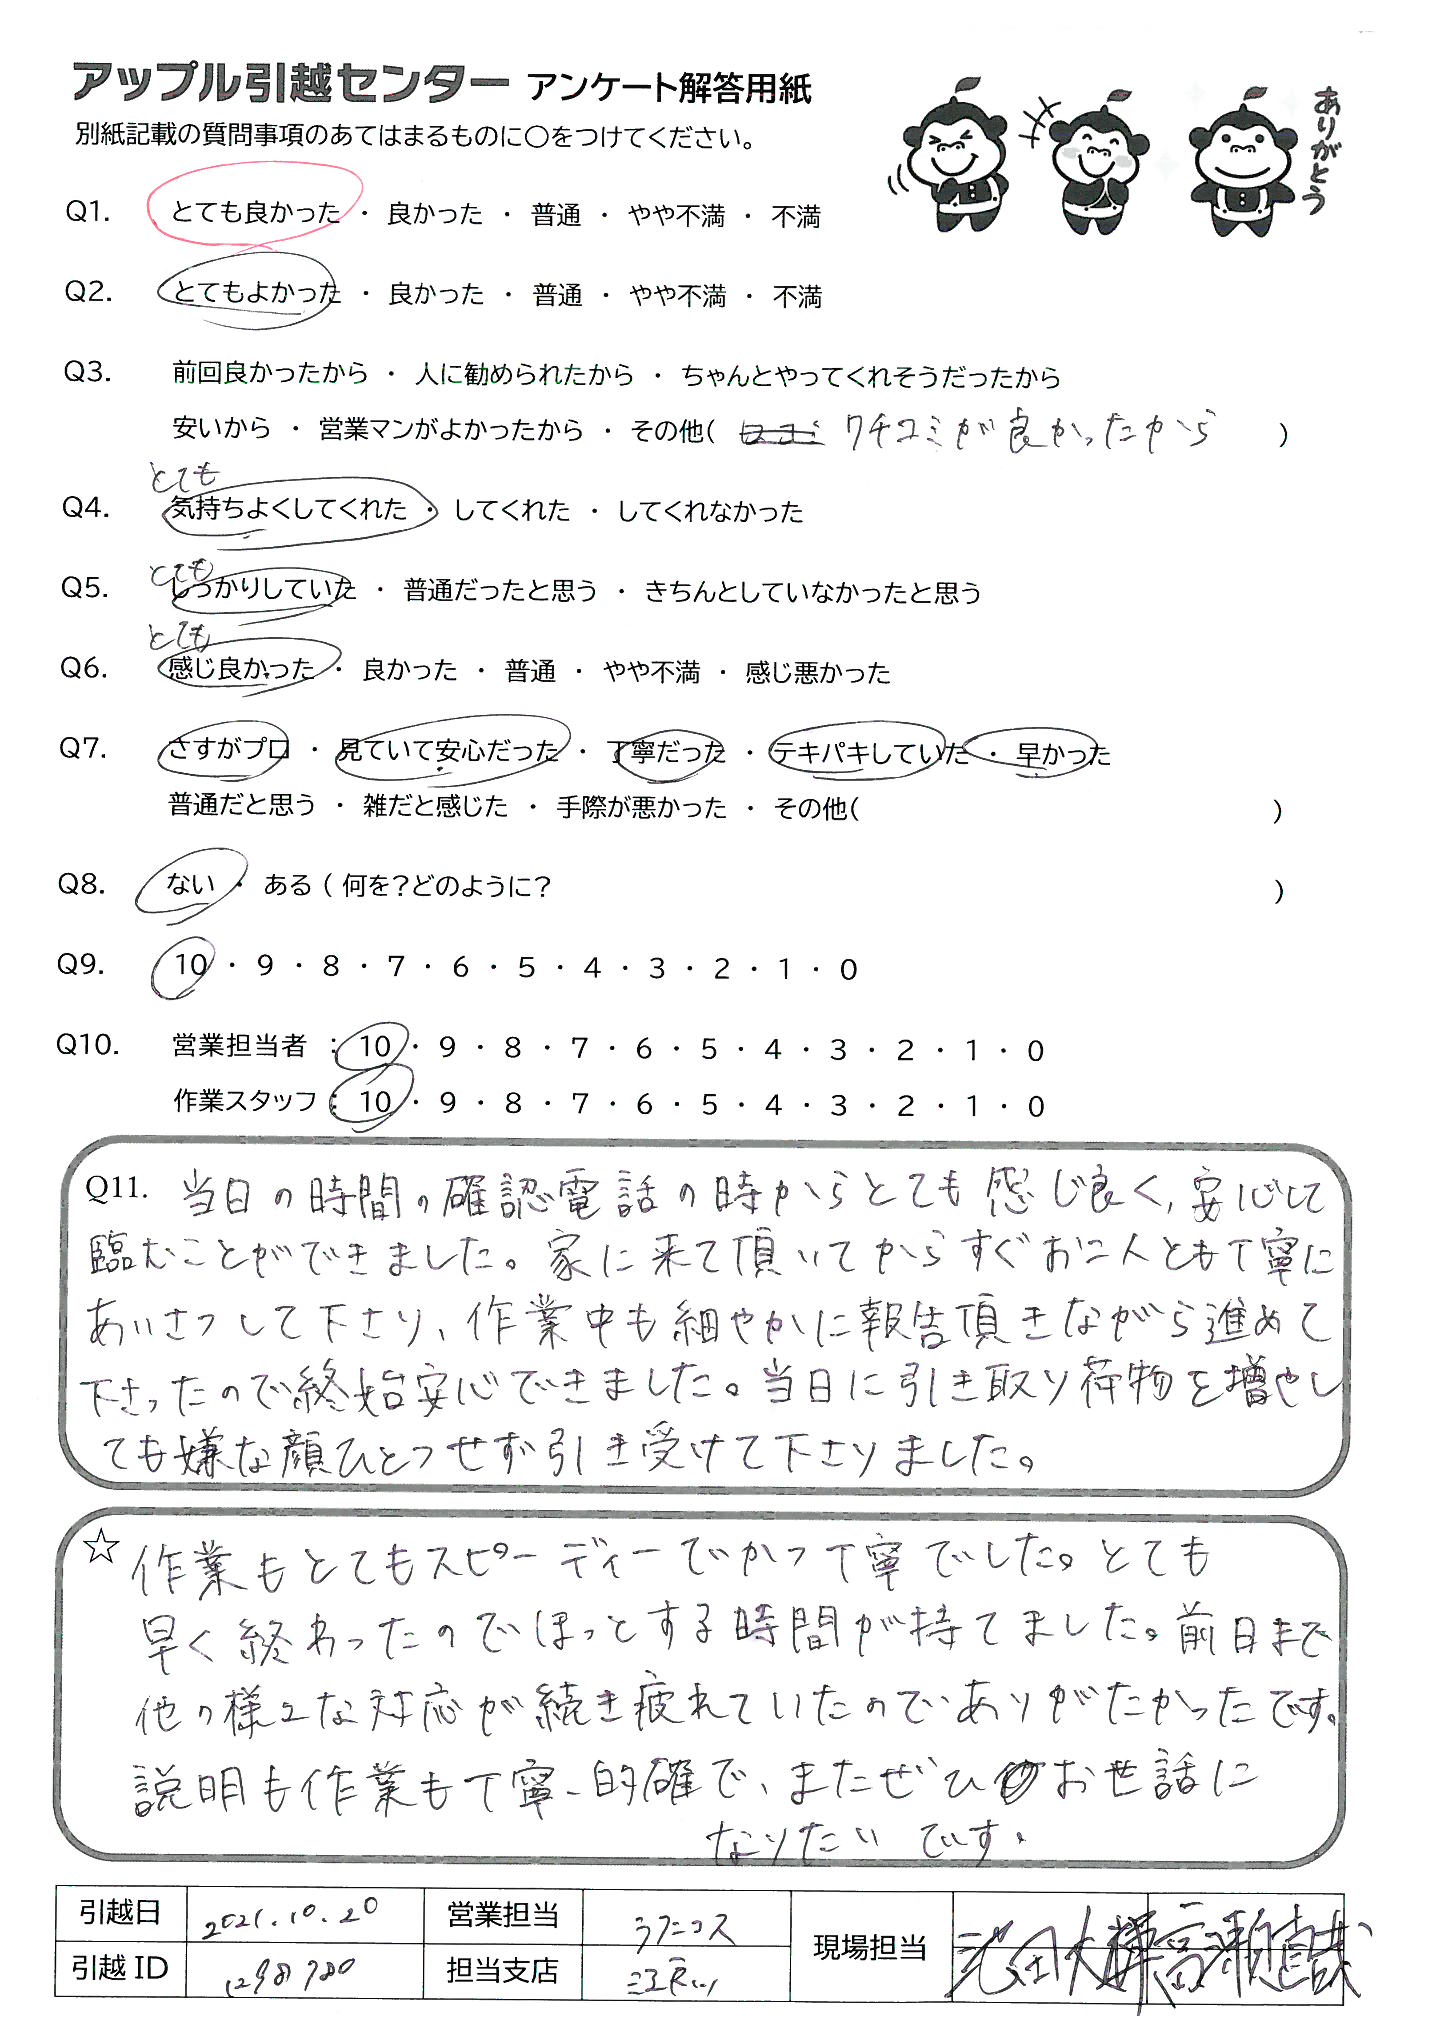 アップル引越センター アンケート解答用紙
ありがとう
別紙記載の質問事項のあてはまるものに○をつけてください。
Q1. とても良かった ・ 良かった ・ 普通 ・ やや不満 ・ 不満
Q2. とてもよかった ・ 良かった ・ 普通 ・ やや不満 ・ 不満
Q3. 前回良かったから ・ 人に勧められたから ・ ちゃんとやってくれそうだったから
安いから ・ 営業マンがよかったから ・ その他( クチコミが良かったから )
とても
Q4. 気持ちよくしてくれた ・ してくれた ・ してくれなかった
とても
Q5. しっかりしていた ・ 普通だったと思う ・ きちんとしていなかったと思う
とても
Q6. 感じ良かった ・ 良かった ・ 普通 ・ やや不満 ・ 感じ悪かった
Q7. さすがプロ ・ 見ていて安心だった ・ 丁寧だった ・ テキパキしていた ・ 早かった
普通だと思う ・ 雑だと感じた ・ 手際が悪かった ・ その他( )
Q8. ない ・ ある ( 何を?どのように? )
Q9. 10 ・ 9 ・ 8 ・ 7 ・ 6 ・ 5 ・ 4 ・ 3 ・ 2 ・ 1 ・ 0
Q10. 営業担当者 : 10 ・ 9 ・ 8 ・ 7 ・ 6 ・ 5 ・ 4 ・ 3 ・ 2 ・ 1 ・ 0
作業スタッフ : 10 ・ 9 ・ 8 ・ 7 ・ 6 ・ 5 ・ 4 ・ 3 ・ 2 ・ 1 ・ 0
Q11. 当日の時間の確認電話の時からとても感じ良く、安心して
臨むことができました。家に来て頂いてからすぐお二人とも丁寧に
あいさつして下さり、作業中も細やかに報告頂きながら進めて
下さったので終始安心できました。当日に引き取り荷物を増やし
ても嫌な顔ひとつせず引き受けて下さりました。
☆ 作業もとてもスピーディーでかつ丁寧でした。とても
早く終わったのでほっとする時間が持てました。前日まで
他の様々な対応が続き疲れていたのでありがたかったです。
説明も作業も丁寧、的確で、またぜひお世話に
なりたいです。
引越日 2021.10.20 営業担当 現場担当 池田大輝 高瀬直哉
引越 ID 1298780 担当支店